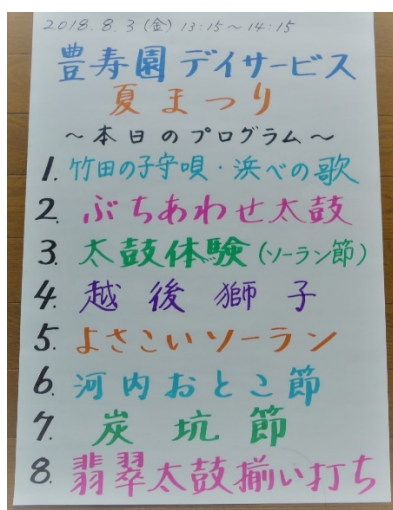 2018.8.3(金)13:15～14:15
豊寿園デイサービス
夏まつり
～本日のプログラム～
1.竹田の子守唄・浜べの歌
2.ぶちあわせ太鼓
3.太鼓体験(ソーラン節)
4.越後獅子
5.よさこいソーラン
6.河内おとこ節
7.炭坑節
8.翡翠太鼓揃い打ち